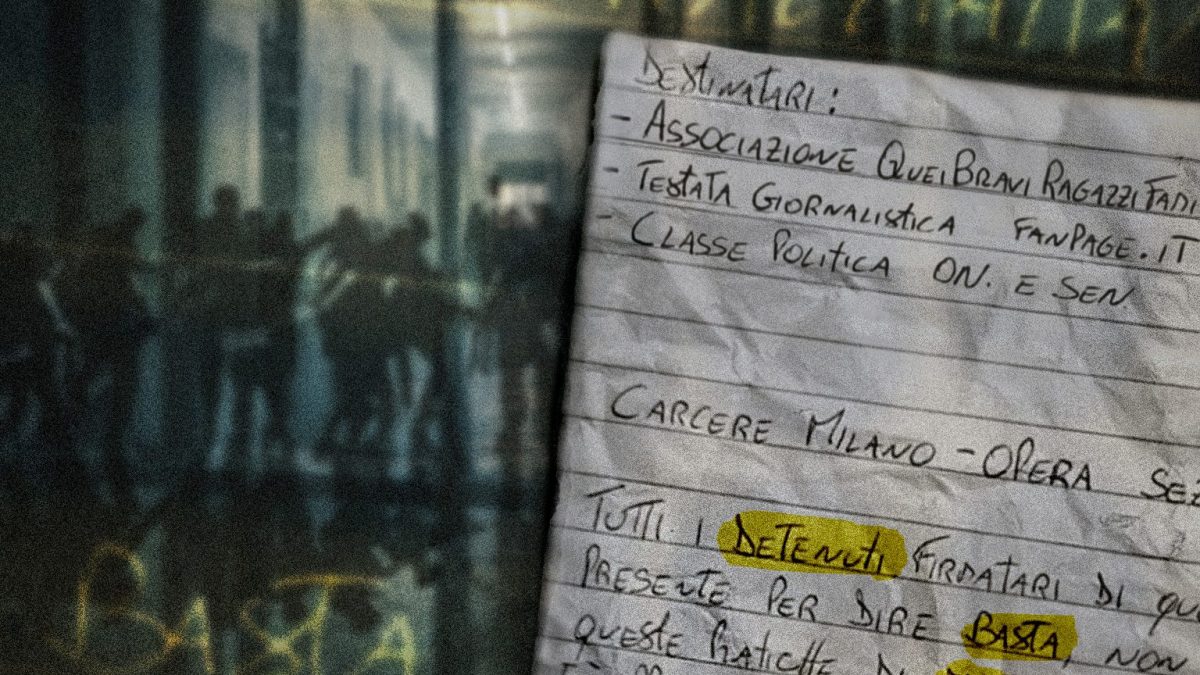 DESTINATARI:
- ASSOCIAZIONE QUEI BRAVI RAGAZZI FADI
- TESTATA GIORNALISTICA FANPAGE.IT
- CLASSE POLITICA ON. E SEN.
CARCERE MILANO - OPERA SEZ
TUTTI I DETENUTI FIRMATARI DI QU
PRESENTE PER DIRE BASTA, NON
QUESTE PRATICHE DI
BASTA